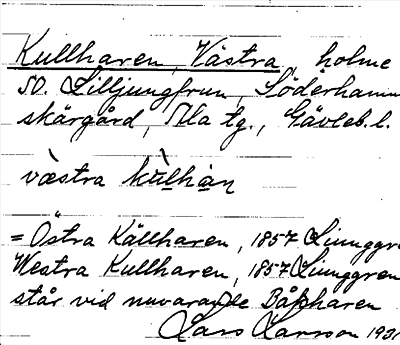 Kullharen, Västra, holme
SO. Lilljungfrun, Söderhamn
skärgård, Ala tg., Gävleb. l.
væ̀stra kùlhàn
= Östra Källharen, 1857 Ljunggre
Westra Kullharen, 1857 Ljunggren
står vid nuvarande Båkharen
Lars Larsson 1931